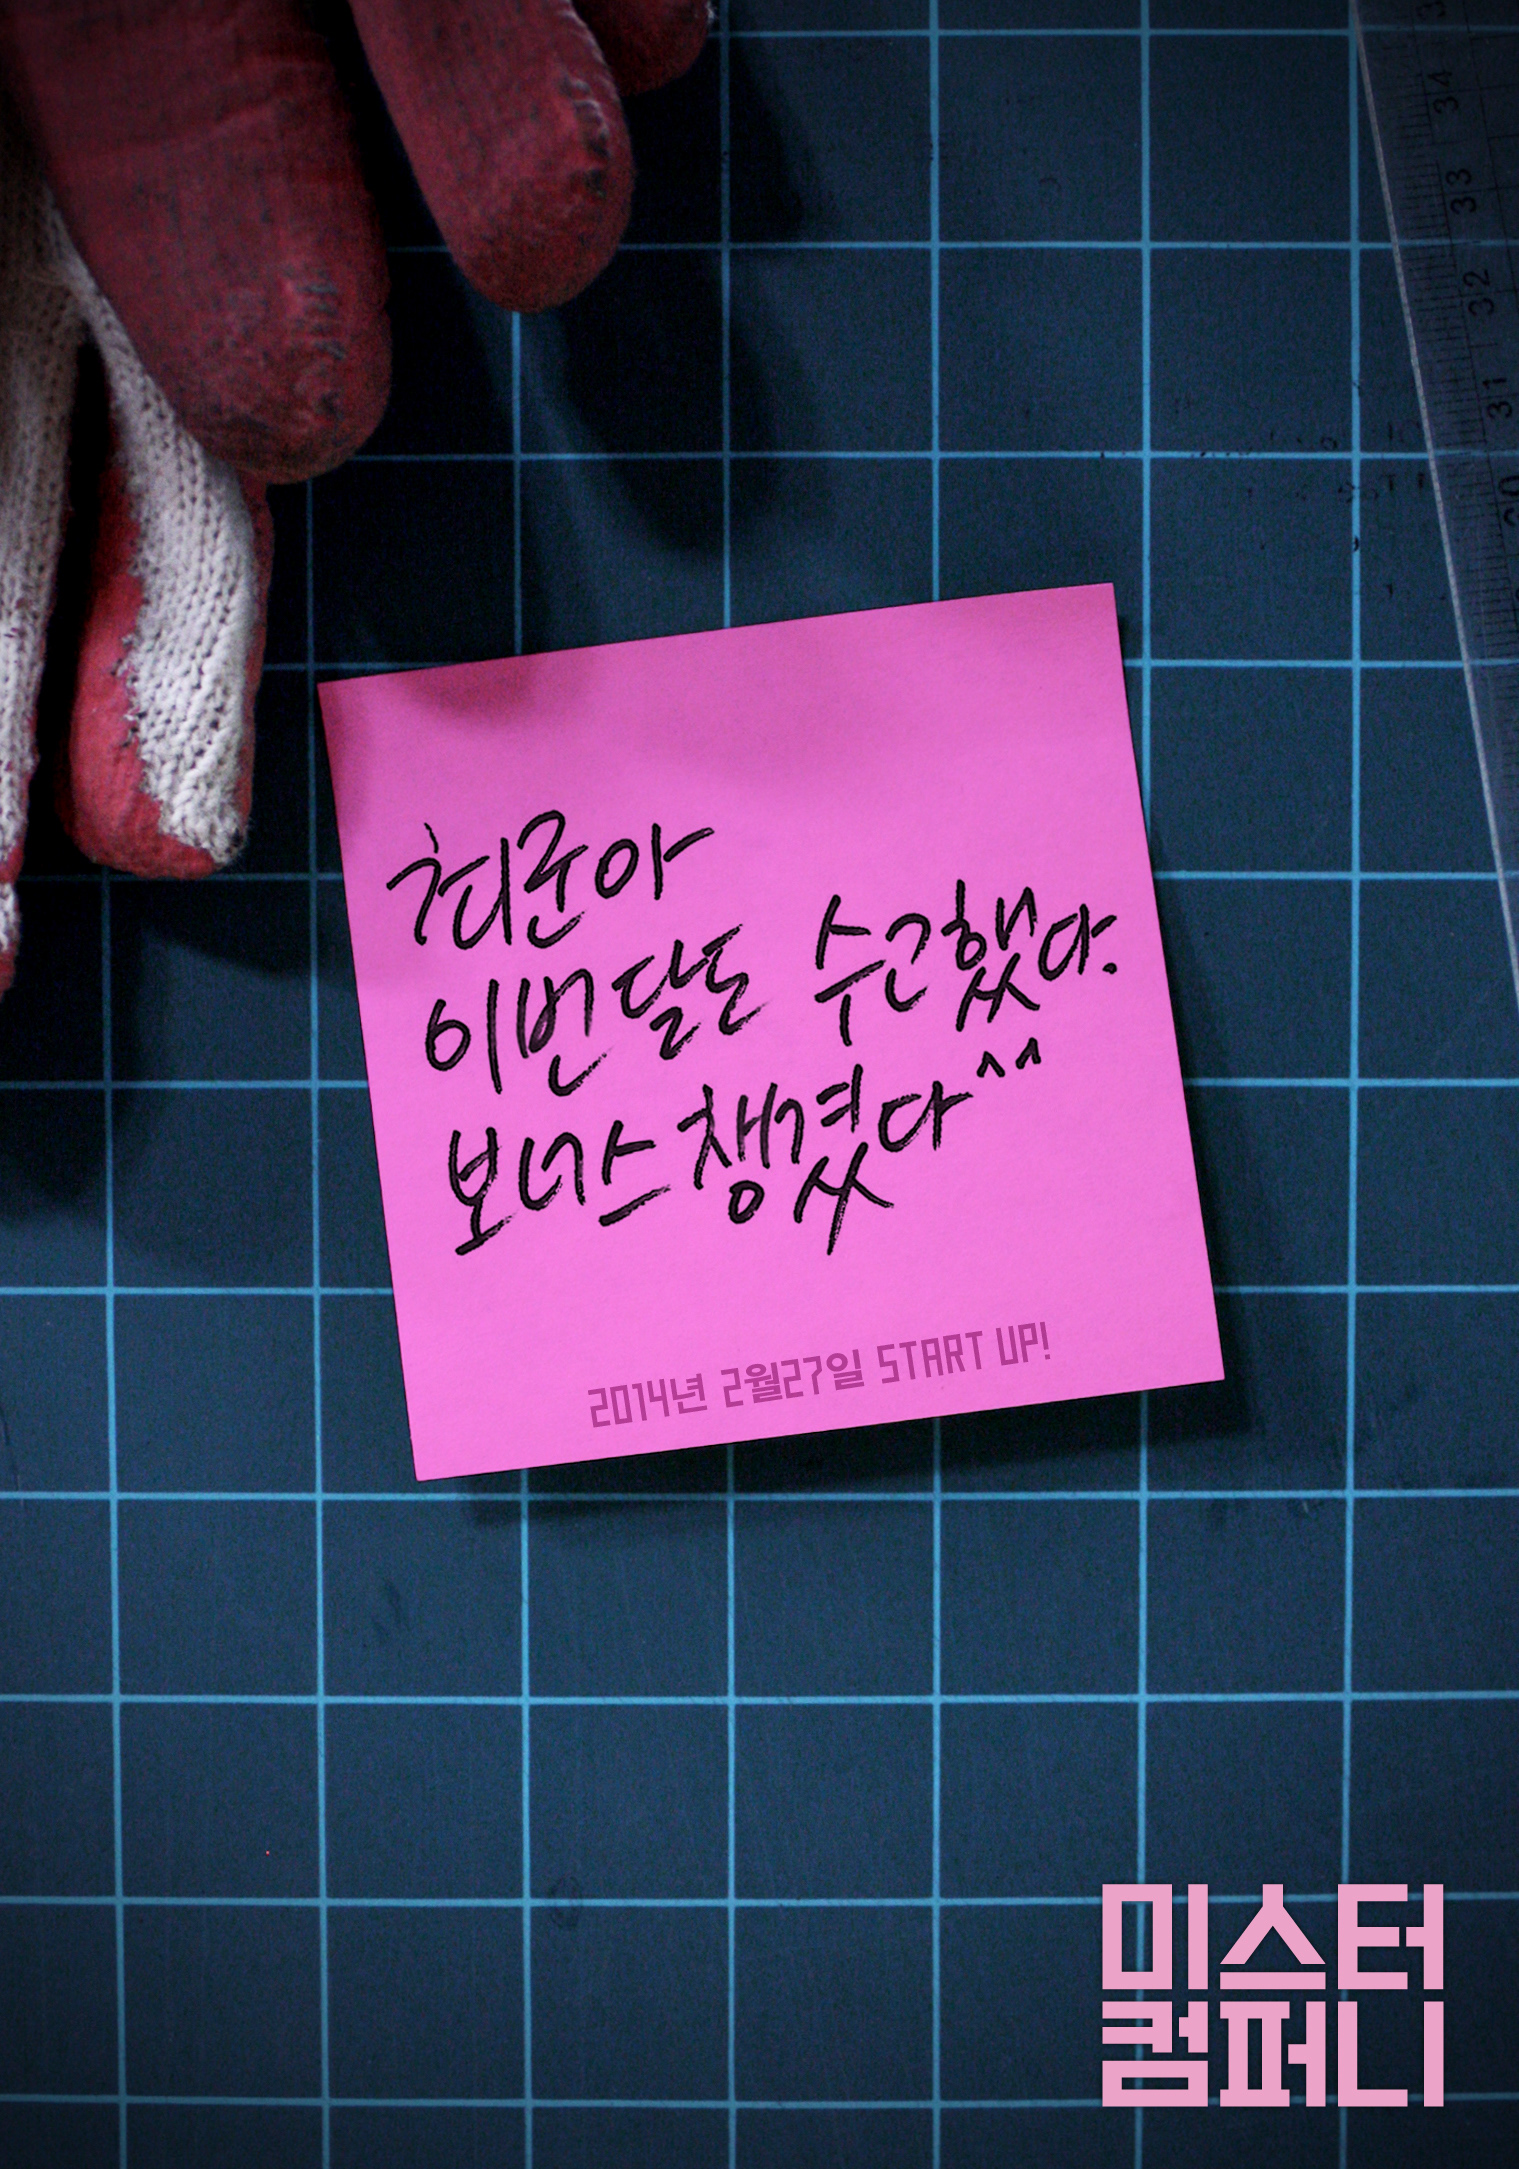 34
33
32
31
30
최군아
이번달도 수고했다.
보너스 챙겼다^^
2014년 2월27일 START UP!
미스터
컴퍼니